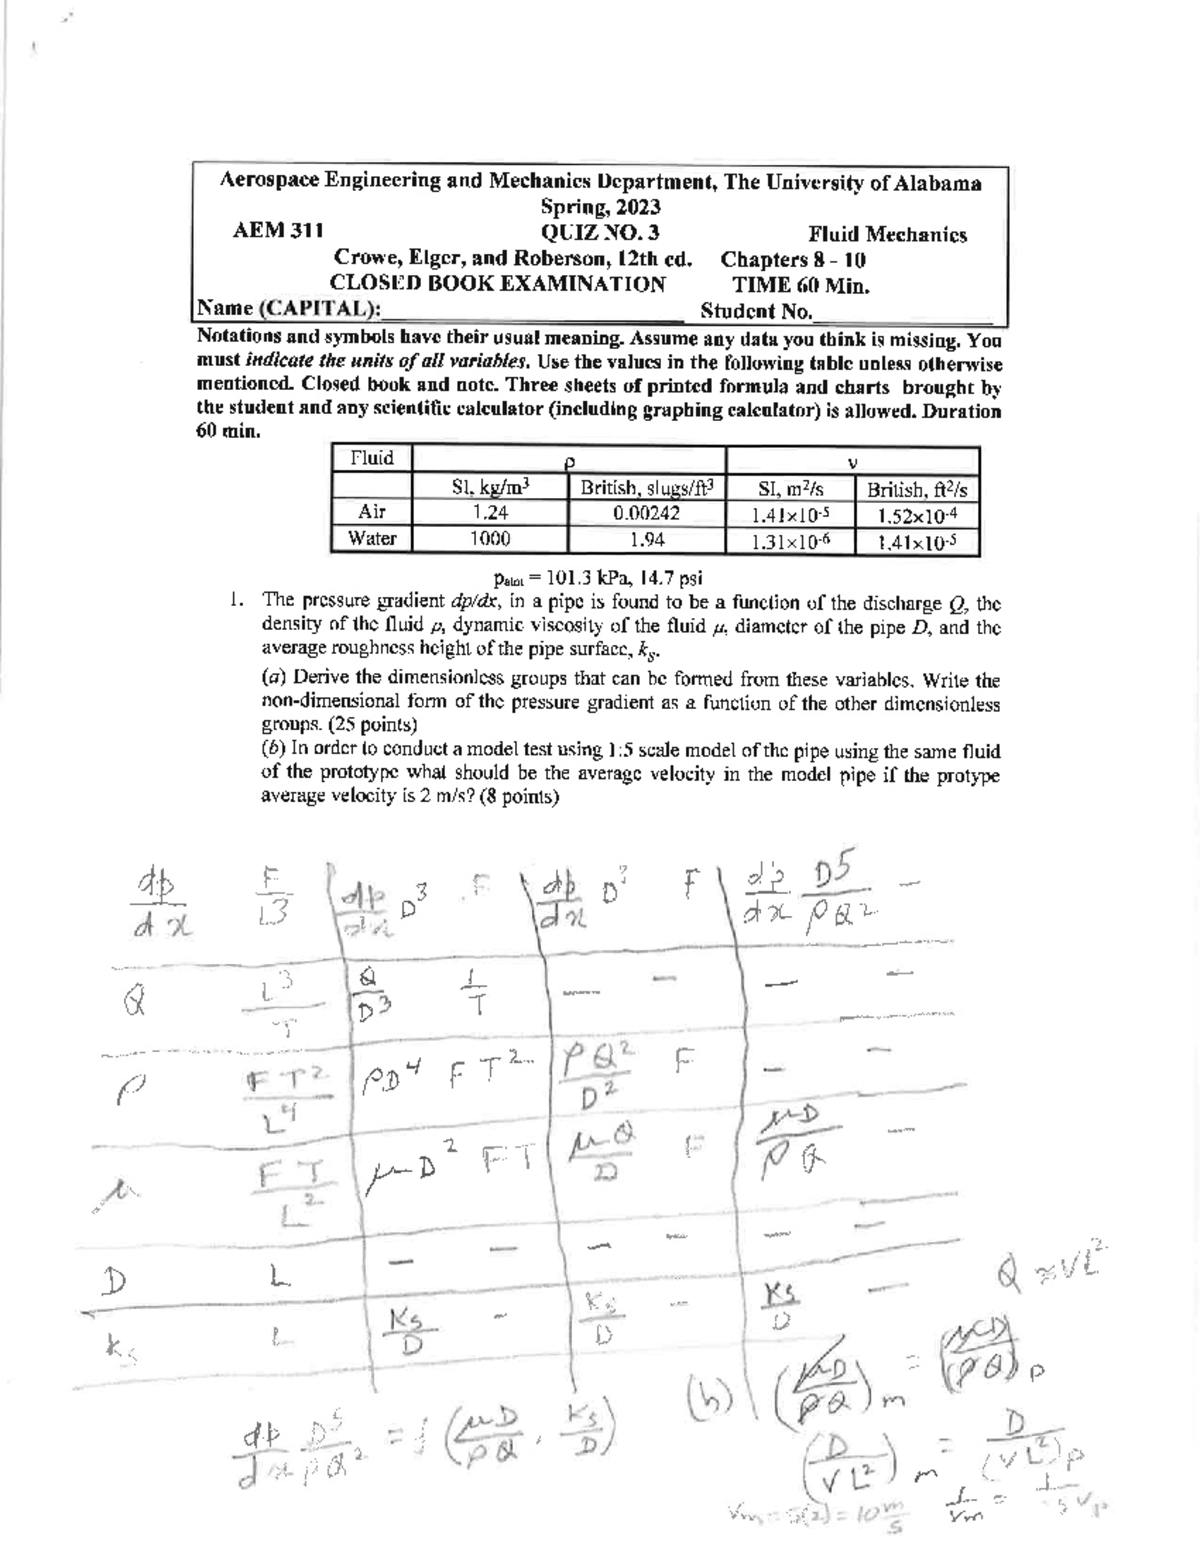 Aerospace Engineering and Mechanics Department, The University of Alabama
Spring, 2023
AEM 311 QUIZ NO. 3 Fluid Mechanics
Crowe, Elger, and Roberson, 12th ed. Chapters 8 - 10
CLOSED BOOK EXAMINATION TIME 60 Min.
Name (CAPITAL): Student No.
Notations and symbols have their usual meaning. Assume any data you think is missing. You
must indicate the units of all variables. Use the values in the following table unless otherwise
mentioned. Closed book and note. Three sheets of printed formula and charts brought by
the student and any scientific calculator (including graphing calculator) is allowed. Duration
60 min.
Fluid ρ ν
SI, kg/m³ British, slugs/ft³ SI, m²/s British, ft²/s
Air 1.24 0.00242 1.41×10-5 1.52×10-4
Water 1000 1.94 1.31×10-6 1.41×10-5
patm = 101.3 kPa, 14.7 psi
1. The pressure gradient dp/dx, in a pipe is found to be a function of the discharge Q, the
density of the fluid ρ, dynamic viscosity of the fluid μ, diameter of the pipe D, and the
average roughness height of the pipe surface, ks.
(a) Derive the dimensionless groups that can be formed from these variables. Write the
non-dimensional form of the pressure gradient as a function of the other dimensionless
groups. (25 points)
(b) In order to conduct a model test using 1:5 scale model of the pipe using the same fluid
of the prototype what should be the average velocity in the model pipe if the protype
average velocity is 2 m/s? (8 points)
dp/dx F/L3 dp/dx D³ F dp/dx D³ F dp/dx D5/ρQ2 –
Q L³/T Q/D3 1/T – – – –
ρ FT2/L4 ρD4 FT2 ρQ2/D2 F – –
μ FT/L2 μD2 FT μQ/D F μD/ρQ –
D L – – – – – –
ks L Ks/D – Ks/D – Ks/D –
Q ≈ VL2
dp/dx D5/ρQ2 = f (μD/ρQ, Ks/D)
(b) (μD/ρQ)m = (μD/ρQ)p
(D/VL2)m = (D/VL2)p
Vm = 5(2) = 10 m/s 1/Vm = 1/5Vp